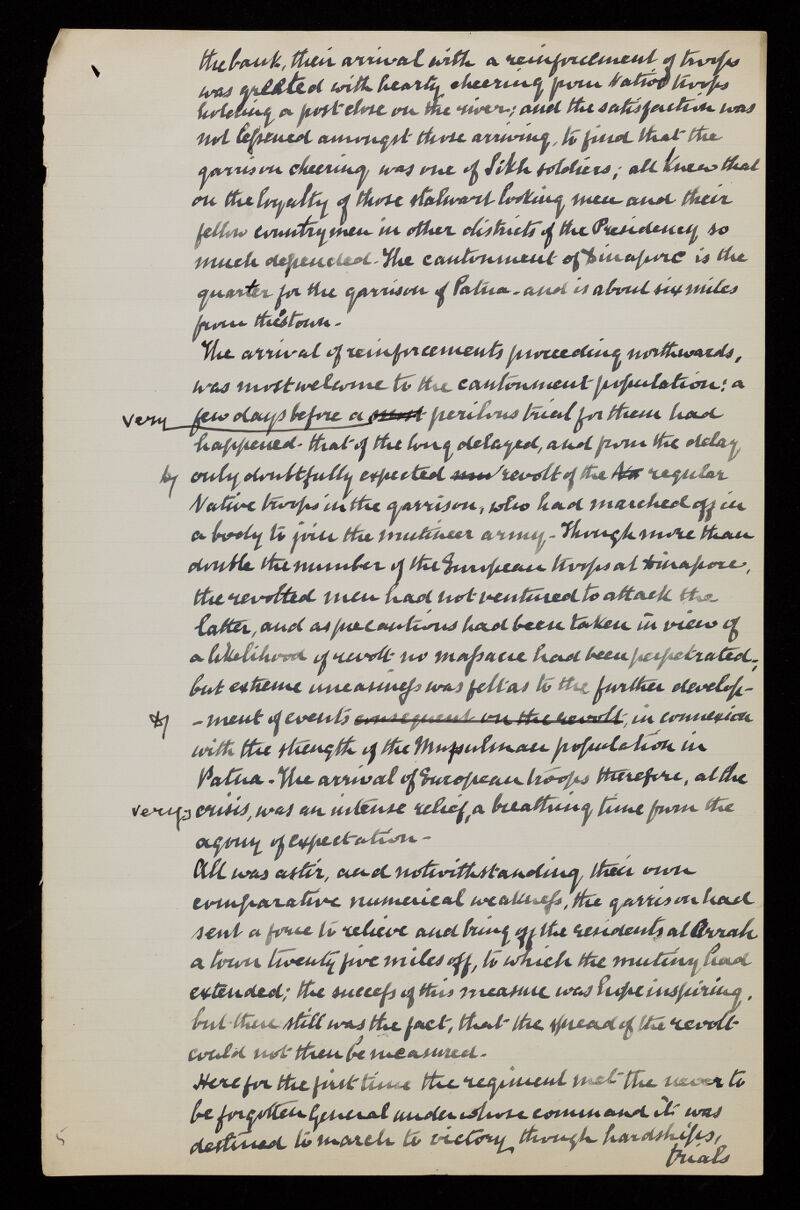 the bank, their arrival with a reinforcement of troops
was greeted with hearty cheering from Native troops
holding a post close on the river; and the satisfaction was
not lessened amongst those arriving, to find that the
garrison cheering was one of Sikh soldiers; all knew that
on the loyalty of those stalwart looking men and their
fellow countrymen in other districts of the Presidency so
much depended. The cantonment of Dinapore is the
quarter for the garrison of Patna - and is about six miles
from the town -
The arrival of reinforcements proceeding northwards,
was most welcome to the cantonment population: a
very few days before a most perilous trial for them had
happened - that of the long delayed, and from the delay
by only doubtfully expected revolt of the regular
Native troops in the garrison, who had marched off in
a body to join the mutineer army - Though more than
double the number of the European troops at Dinapore,
the revolted men had not ventured to attack the
latter, and as precautions had been taken in view of
a likelihood of revolt no massacre had been perpetrated;
but extreme uneasiness was felt as to the further develop-
-ment of events consequent on the revolt, in connexion
with the strength of the Mussulman population in
Patna - The arrival of European troops therefore, at the
very crisis, was an intense relief, a breathing time from the
agony of expectation -
All was astir, and notwithstanding, their own
comparative numerical weakness, the garrison had
sent a force to relieve and bring off the residents at Arrah
a town twenty five miles off, to which the mutiny had
extended; the success of this measure was hope inspiring,
but there still was the fact, that the spread of the revolt
could not then be measured -
Here for the first time the regiment met the never to
be forgotten General under whose command it was
destined to march to victory, though hardships,
trials
5